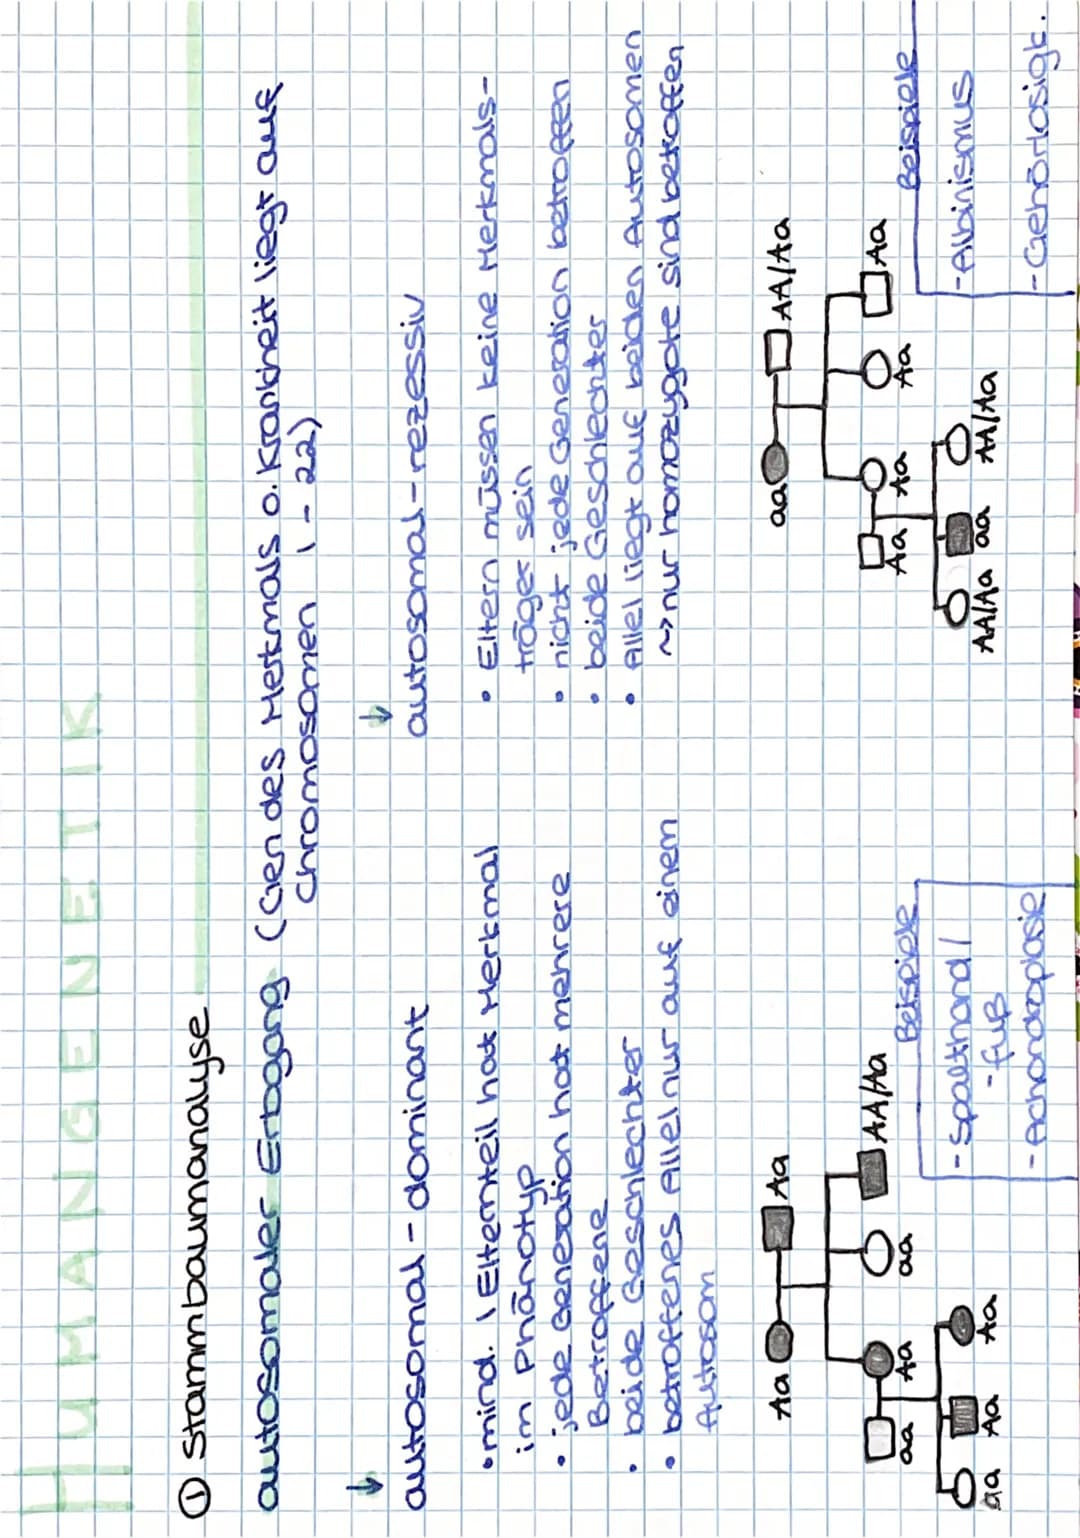 HUMANGENETIK
① Stammbaumanalyse
autosomaler Erbgang (Gen des Merkmals o. Krankheit liegt auf
Chromosomen 1-22)
↓
autosomal-dominant
• mind. 1 Elternteil hat Merkmal
im Phänotyp
• jede Generation hat mehrere
Betroffene
• beide Geschlechter
• betroffenes Allel nur auf einem
Autosom
Aa
Aa
aa
Aa
aa
AA/Aa
aa
Aa
Aa
Beispiele
- Spalthand/
-fuß
- Achondroplasie
↓
autosomal-rezessiv
• Eltern müssen keine Merkmals-
träger sein
• nicht jede Generation betroffen
• beide Geschlechter
• Allel liegt auf beiden Autosomen
~> nur homozygote sind betroffen
aa
AA/Aa
Aa
Aa
Aa
Aa
AA/Aa
aa
AA/Aa
Beispiele
- Albinismus
- Gehörlosigk.